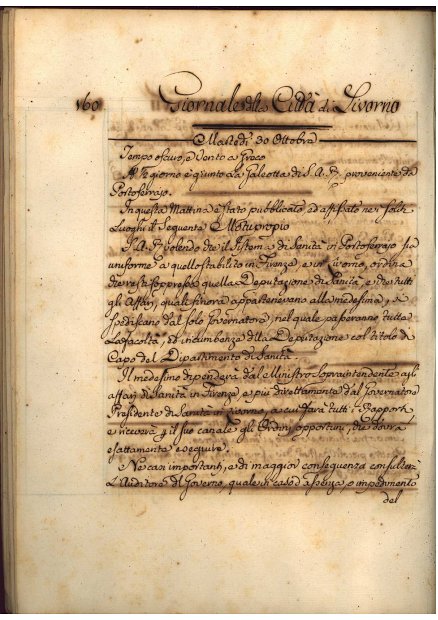 160 Giornale della Città di Livorno
Martedì 30 Ottobre
Tempo oscuro, e Vento a Greco
A ½ giorno è giunto La Galeotta di S. A. R. proveniente da
Portoferrajo.
In questa Mattina è stato pubblicato, ed affissato nei soliti
Luoghi il Seguente Motuproprio
S. A. R. volendo che il Sistema di Sanità in Portoferrajo sia
uniforme a quello stabilito in Firenze, e in Livorno, ordina
che resti soppressa quella Deputazione di Sanità, e che tutti
gli Affari, quali finora appartenevano alla medesima, si
spediscano dal solo Governatore, nel quale passeranno tutte
Le facoltà, ed incumbenze della Deputazione col titolo di
Capo del Dipartimento di Sanità
Il medesimo dipenderà dal Ministro Sopraintendente agli
affari di Sanità in Firenze, e più direttamente dal Governatore
Presidente di Sanità in Livorno, a cui farà tutti i Rapporti,
e riceverà per il suo canale gli Ordini opportuni, che dovrà
esattamente eseguire.
Ne casi importanti, e di maggior conseguenza consulterà
L'Auditore del Governo, quale in caso d'assenza, o impedimento
del